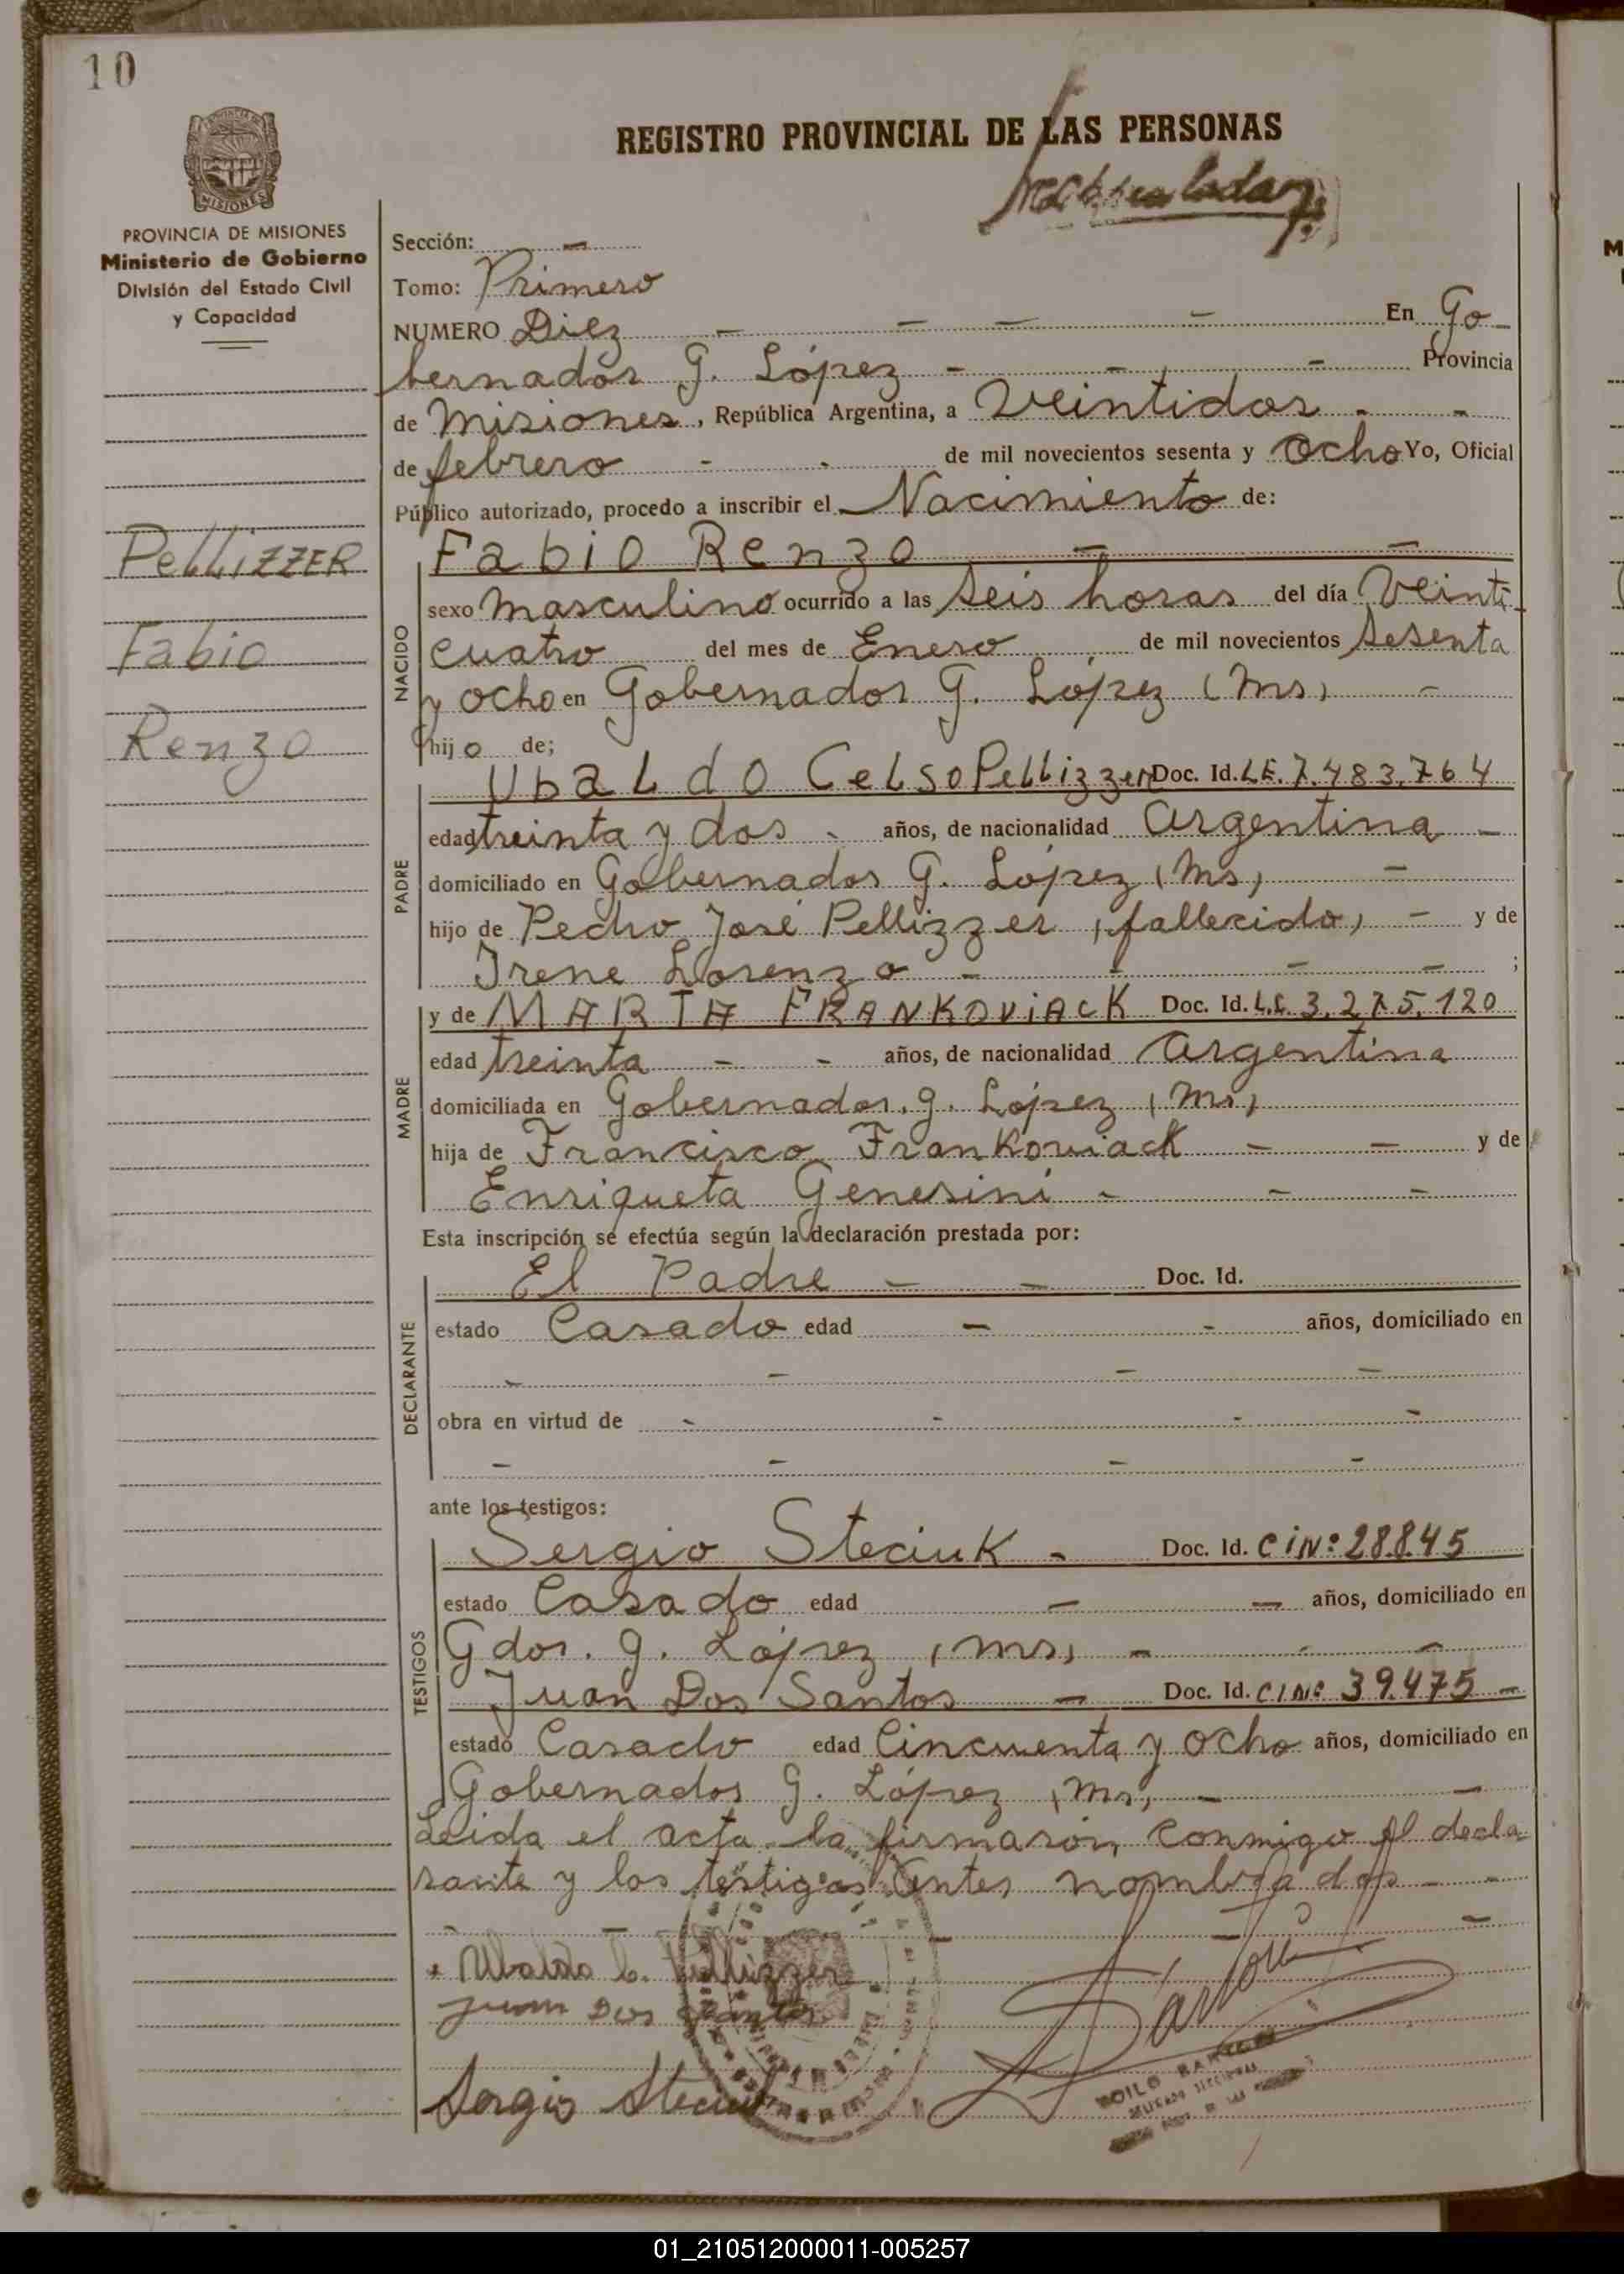 10
REGISTRO PROVINCIAL DE LAS PERSONAS
MISIONES
PROVINCIA DE MISIONES
Ministerio de Gobierno
División del Estado Civil
y Capacidad
PELLIZZER
Fabio
Renzo
Sección: -
Tomo: Primero
NUMERO Diez - - - - En Go-
bernador G. López - - - Provincia
de Misiones, República Argentina, a Veintidos - -
de febrero - - de mil novecientos sesenta y Ocho Yo, Oficial
Público autorizado, procedo a inscribir el Nacimiento de:
Fabio Renzo - -
NACIDO
sexo masculino ocurrido a las seis horas del día Veinti-
cuatro del mes de Enero de mil novecientos sesenta
y ocho en Gobernador G. López (Ms) -
hijo de;
Ubaldo Celso Pellizzer Doc. Id. L.E. 7.483.764
PADRE
edad treinta y dos - años, de nacionalidad Argentina -
domiciliado en Gobernador G. López (Ms) -
hijo de Pedro José Pellizzer (fallecido) - y de
Irene Lorenzo - - - - ;
y de MARTA FRANKOVIACK Doc. Id. L.C. 3.275.120
MADRE
edad treinta - - años, de nacionalidad Argentina
domiciliada en Gobernador. G. López (Ms)
hija de Francisco Frankoviack - - y de
Enriqueta Genesini - - -
Esta inscripción se efectúa según la declaración prestada por:
El Padre - - Doc. Id.
DECLARANTE
estado Casado edad - - años, domiciliado en
- - - -
obra en virtud de - - - -
- - - -
ante los testigos:
Sergio Steciuk - Doc. Id. CiNº 28.845
TESTIGOS
estado Casado edad - - años, domiciliado en
Gdor. G. López (Ms) - - -
Juan Dos Santos - Doc. Id. CINº 39.475 -
estado Casado edad Cincuenta y ocho años, domiciliado en
Gobernador G. López (Ms) - -
Leida el acta la firmaron conmigo el decla
rante y los testigos antes nombrados - -
Ubaldo C. Pellizzer
Juan Dos Santos
Sergio Steciuk
01_210512000011-005257